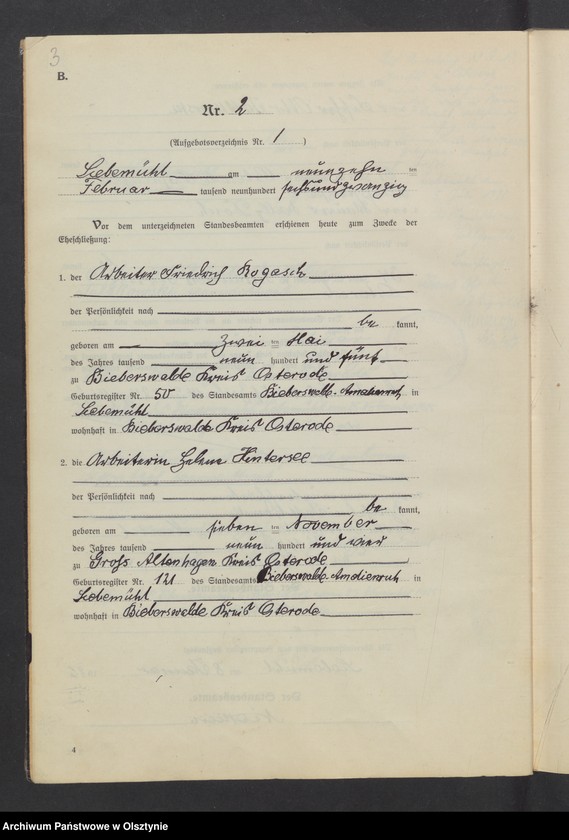 3
B.
Nr. 2
(Aufgebotsverzeichnis Nr. 1)
Liebemühl am neunzehn ten
Februar tausend neunhundert sechsundzwanzig
Vor dem unterzeichneten Standesbeamten erschienen heute zum Zwecke der
Eheschließung:
1. der Arbeiter Friedrich Rogasch
der Persönlichkeit nach
be kannt,
geboren am zwei ten Mai
des Jahres tausend neun hundert und fünf
zu Bieberswalde Kreis Osterode
Geburtsregister Nr. 50 des Standesamts Bieberswalde-Amalienruh in
Liebemühl
wohnhaft in Bieberswalde Kreis Osterode
2. die Arbeiterin Helene Hintersee
der Persönlichkeit nach
be kannt,
geboren am sieben ten November
des Jahres tausend neun hundert und vier
zu Groß Altenhagen Kreis Osterode
Geburtsregister Nr. 121 des Standesamts Bieberswalde-Amalienruh in
Liebemühl
wohnhaft in Bieberswalde Kreis Osterode
4
Archiwum Państwowe w Olsztynie